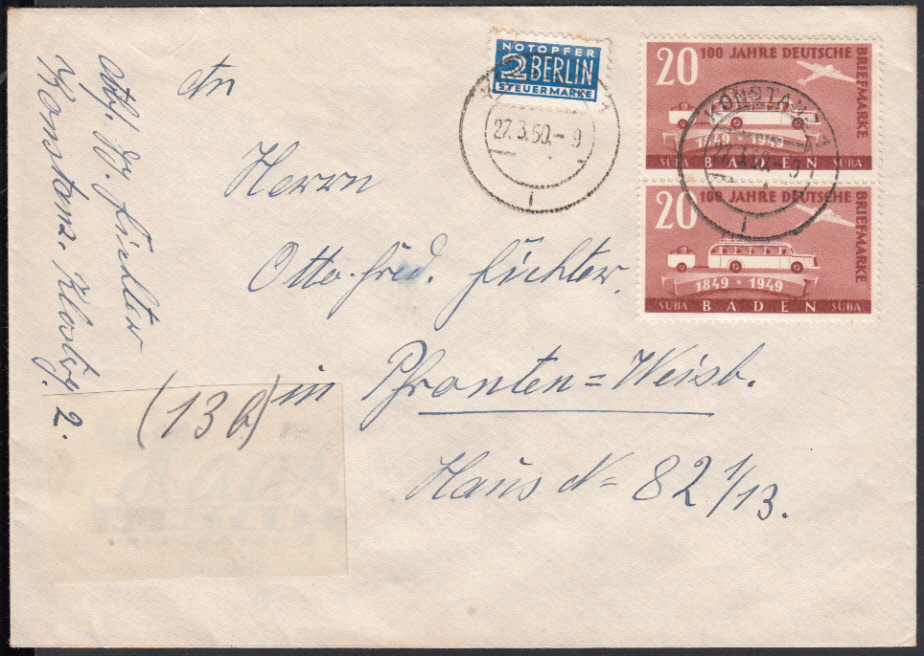 NOTOPFER
2 BERLIN
STEUERMARKE
27.3.50.-9
20 100 JAHRE DEUTSCHE
BRIEFMARKE
KONSTANZ
1849 • 1949
SUBA BADEN SUBA
20 100 JAHRE DEUTSCHE
BRIEFMARKE
1849 • 1949
SUBA BADEN SUBA
An
Herrn
Otto-fred. Füchter.
(13b) in Pfronten=Weisb.
Haus No 82 1/13.
Füchter
Konstanz.
2.